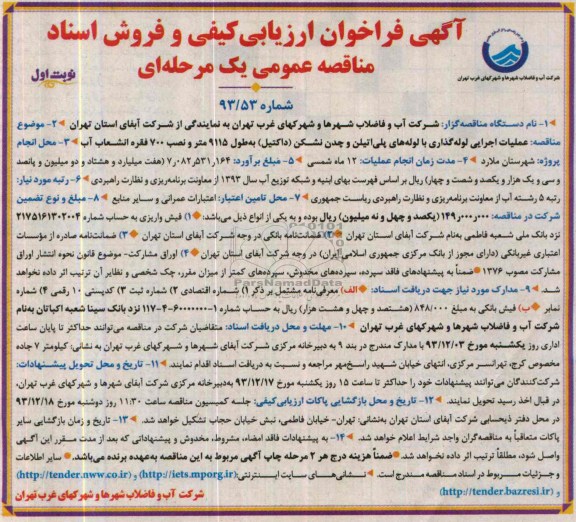 آگهی فراخوان ارزیابی‌کیفی و فروش اسناد
مناقصه عمومی یک مرحله‌ای
شرکت آب و فاضلاب شهرها و شهرکهای غرب تهران
نوبت اول
شماره ۹۳/۵۳
۱- نام دستگاه مناقصه‌گزار: شرکت آب و فاضلاب شهرها و شهرکهای غرب تهران به نمایندگی از شرکت آبفای استان تهران ۲- موضوع
مناقصه: عملیات اجرایی لوله‌گذاری با لوله‌های پلی‌اتیلن و چدن نشکن (داکتیل) به‌طول ۹۱۱۵ متر و نصب ۷۰۰ فقره انشعاب آب ۳- محل انجام
پروژه: شهرستان ملارد ۴- مدت زمان انجام عملیات: ۱۲ ماه شمسی ۵- مبلغ برآورد: ۷٫۰۸۲٫۵۳۱٫۱۶۴ (هفت میلیارد و هشتاد و دو میلیون و پانصد
و سی و یک هزار و یکصد و شصت و چهار) ریال بر اساس فهرست بهای ابنیه و شبکه توزیع آب سال ۱۳۹۳ از معاونت برنامه‌ریزی و نظارت راهبردی ۶- رتبه مورد نیاز:
رتبه ۵ رشته آب از معاونت برنامه‌ریزی و نظارت راهبردی ریاست جمهوری ۷- محل تامین اعتبار: اعتبارات عمرانی و سایر منابع ۸- مبلغ و نوع تضمین
شرکت در مناقصه: ۱۴۹٫۰۰۰٫۰۰۰ (یکصد و چهل و نه میلیون) ریال بوده و به یکی از انواع ذیل می‌باشد: (۱) فیش واریزی به حساب شماره ۲۱۷۵۱۶۱۳۰۲۰۰۴
نزد بانک ملی شعبه فاطمی به‌نام شرکت آبفای استان تهران (۲) ضمانت‌نامه بانکی در وجه شرکت آبفای استان تهران (۳) ضمانت‌نامه صادره از مؤسسات
اعتباری غیربانکی (دارای مجوز از بانک مرکزی جمهوری اسلامی ایران) در وجه شرکت آبفای استان تهران (۴) اوراق مشارکت- موضوع قانون نحوه انتشار اوراق
مشارکت مصوب ۱۳۷۶ ضمناً به پیشنهادهای فاقد سپرده، سپرده‌های مخدوش، سپرده‌های کمتر از میزان مقرر، چک شخصی و نظایر آن ترتیب اثر داده نخواهد
شد. ۹- مدارک مورد نیاز جهت دریافت اسناد: الف) معرفی‌نامه مشتمل بر ذکر ۱) شماره اقتصادی ۲) شماره ثبت ۳) کدپستی ۱۰ رقمی ۴) شماره
نمابر ب) فیش بانکی به مبلغ ۸۴۸/۰۰۰ (هشتصد و چهل و هشت هزار) ریال به حساب شماره ۱-۶۰۰۰۰۰۰-۴-۱۱۷ نزد بانک سینا شعبه اکباتان به‌نام
شرکت آب و فاضلاب شهرها و شهرکهای غرب تهران ۱۰- مهلت و محل دریافت اسناد: متقاضیان شرکت در مناقصه می‌توانند حداکثر تا پایان ساعت
اداری روز یکشنبه مورخ ۹۳/۱۲/۰۳ با مدارک مندرج در بند ۹ به دبیرخانه مرکزی شرکت آبفای شهرها و شهرکهای غرب تهران به نشانی: کیلومتر ۷ جاده
مخصوص کرج، تهرانسر مرکزی، انتهای خیابان شهید راسخ‌مهر مراجعه و نسبت به دریافت اسناد اقدام نمایند. ۱۱- تاریخ و محل تحویل پیشنهادات:
شرکت‌کنندگان می‌توانند پیشنهادات خود را حداکثر تا ساعت ۱۵ روز یکشنبه مورخ ۹۳/۱۲/۱۷ به‌دبیرخانه مرکزی شرکت آبفای شهرها و شهرکهای غرب تهران،
در قبال اخذ رسید تحویل نمایند. ۱۲- تاریخ و محل بازگشایی پاکات ارزیابی‌کیفی: جلسه کمیسیون مناقصه ساعت ۱۱:۳۰ روز دوشنبه مورخ ۹۳/۱۲/۱۸
در محل دفتر ذیحسابی شرکت آبفای استان تهران به‌نشانی: تهران- خیابان فاطمی، نبش خیابان حجاب تشکیل خواهد شد. ۱۳- تاریخ و زمان بازگشایی سایر
پاکات متعاقباً به مناقصه‌گران واجد شرایط اعلام خواهد شد. ۱۴- به پیشنهادات فاقد امضاء، مشروط، مخدوش و پیشنهاداتی که بعد از مدت مقرر این آگهی
واصل شود، مطلقاً ترتیب اثر داده نخواهد شد. ضمناً هزینه درج هر ۲ مرحله چاپ آگهی مربوط به این مناقصه به‌عهده برنده می‌باشد. سایر اطلاعات
و جزئیات مربوط در اسناد مناقصه مندرج است. نشانی‌های سایت اینترنتی: (http://iets.mporg.ir) و (http://tender.nww.co.ir)
و (http://tender.bazresi.ir)
شرکت آب و فاضلاب شهرها و شهرکهای غرب تهران
ParsNamadData